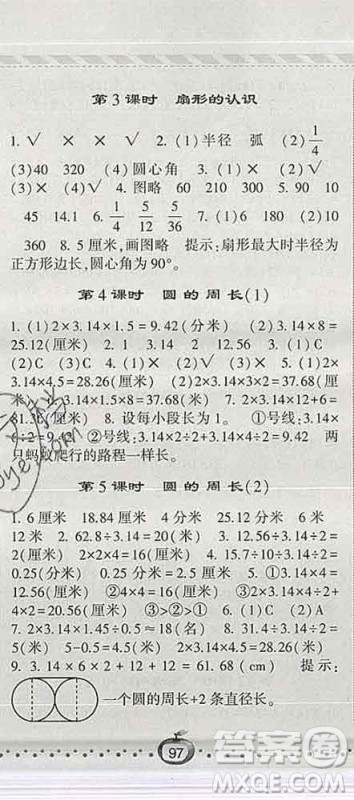 第3课时 扇形的认识
1. √ × × √ 2. (1)半径 弧 (2)1/4
(3)40 320 (4)圆心角 3. (1)× (2)√
(3)× (4)√ 4. 图略 60 210 300 5. 90 10
45 14.1 6. 1/4 5/12 5/36 7. (1)6 180 (2)90
360 8. 5厘米,画图略 提示:扇形最大时半径为
正方形边长,圆心角为90°。
第4课时 圆的周长(1)
1. (1)2×3.14×1.5=9.42(分米) (2)3.14×8=
25.12(厘米) 2. 1 3.14 3. (1)C (2)A
(3)C 4. (1)× (2)× (3)× 5. (1)C (2)C
(3)×
3.14×4.5=28.26(厘米) 2×3.14×6=37.68(厘
2=9.42 ②号线:3.14×2÷2+3.14×4÷2=9.42 两
只蚂蚁爬行的路程一样长。
第5课时 圆的周长(2)
1. 6厘米 18.84厘米 4分米 25.12分米 6米
12米 2. 62.8÷3.14=20(米) 3. 3.14÷3.14÷2=
0.5(分米) 4. 15.7÷3.14÷2=
5. ①3.14×4=
12.56(厘米) ②3.14×4÷2+4=
③>②>① 6. (1)C (2)A
7. 2×3.14×1.45÷0.5≈18(名) 8. 31.4÷3.14÷2=
5(米) 5-0.5=4.5(米) 2×3.14×4.5=28.26(米)
9. 3.14×6×2+12+12=61.68(cm) 提示:
一个圆的周长+2条直径长。
97
答案圈
MXQE.COM